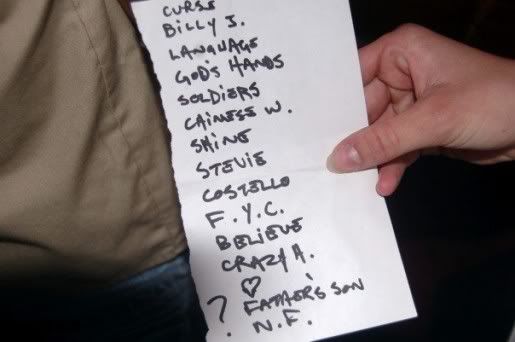 CURSE
BILLY J.
LANGUAGE
GOD'S HANDS
SOLDIERS
CAINESE W.
SHINE
STEVIE
COSTELLO
F.Y.C.
BELIEVE
CRAZY A.
♡
? FATHER'S SON
N.F.